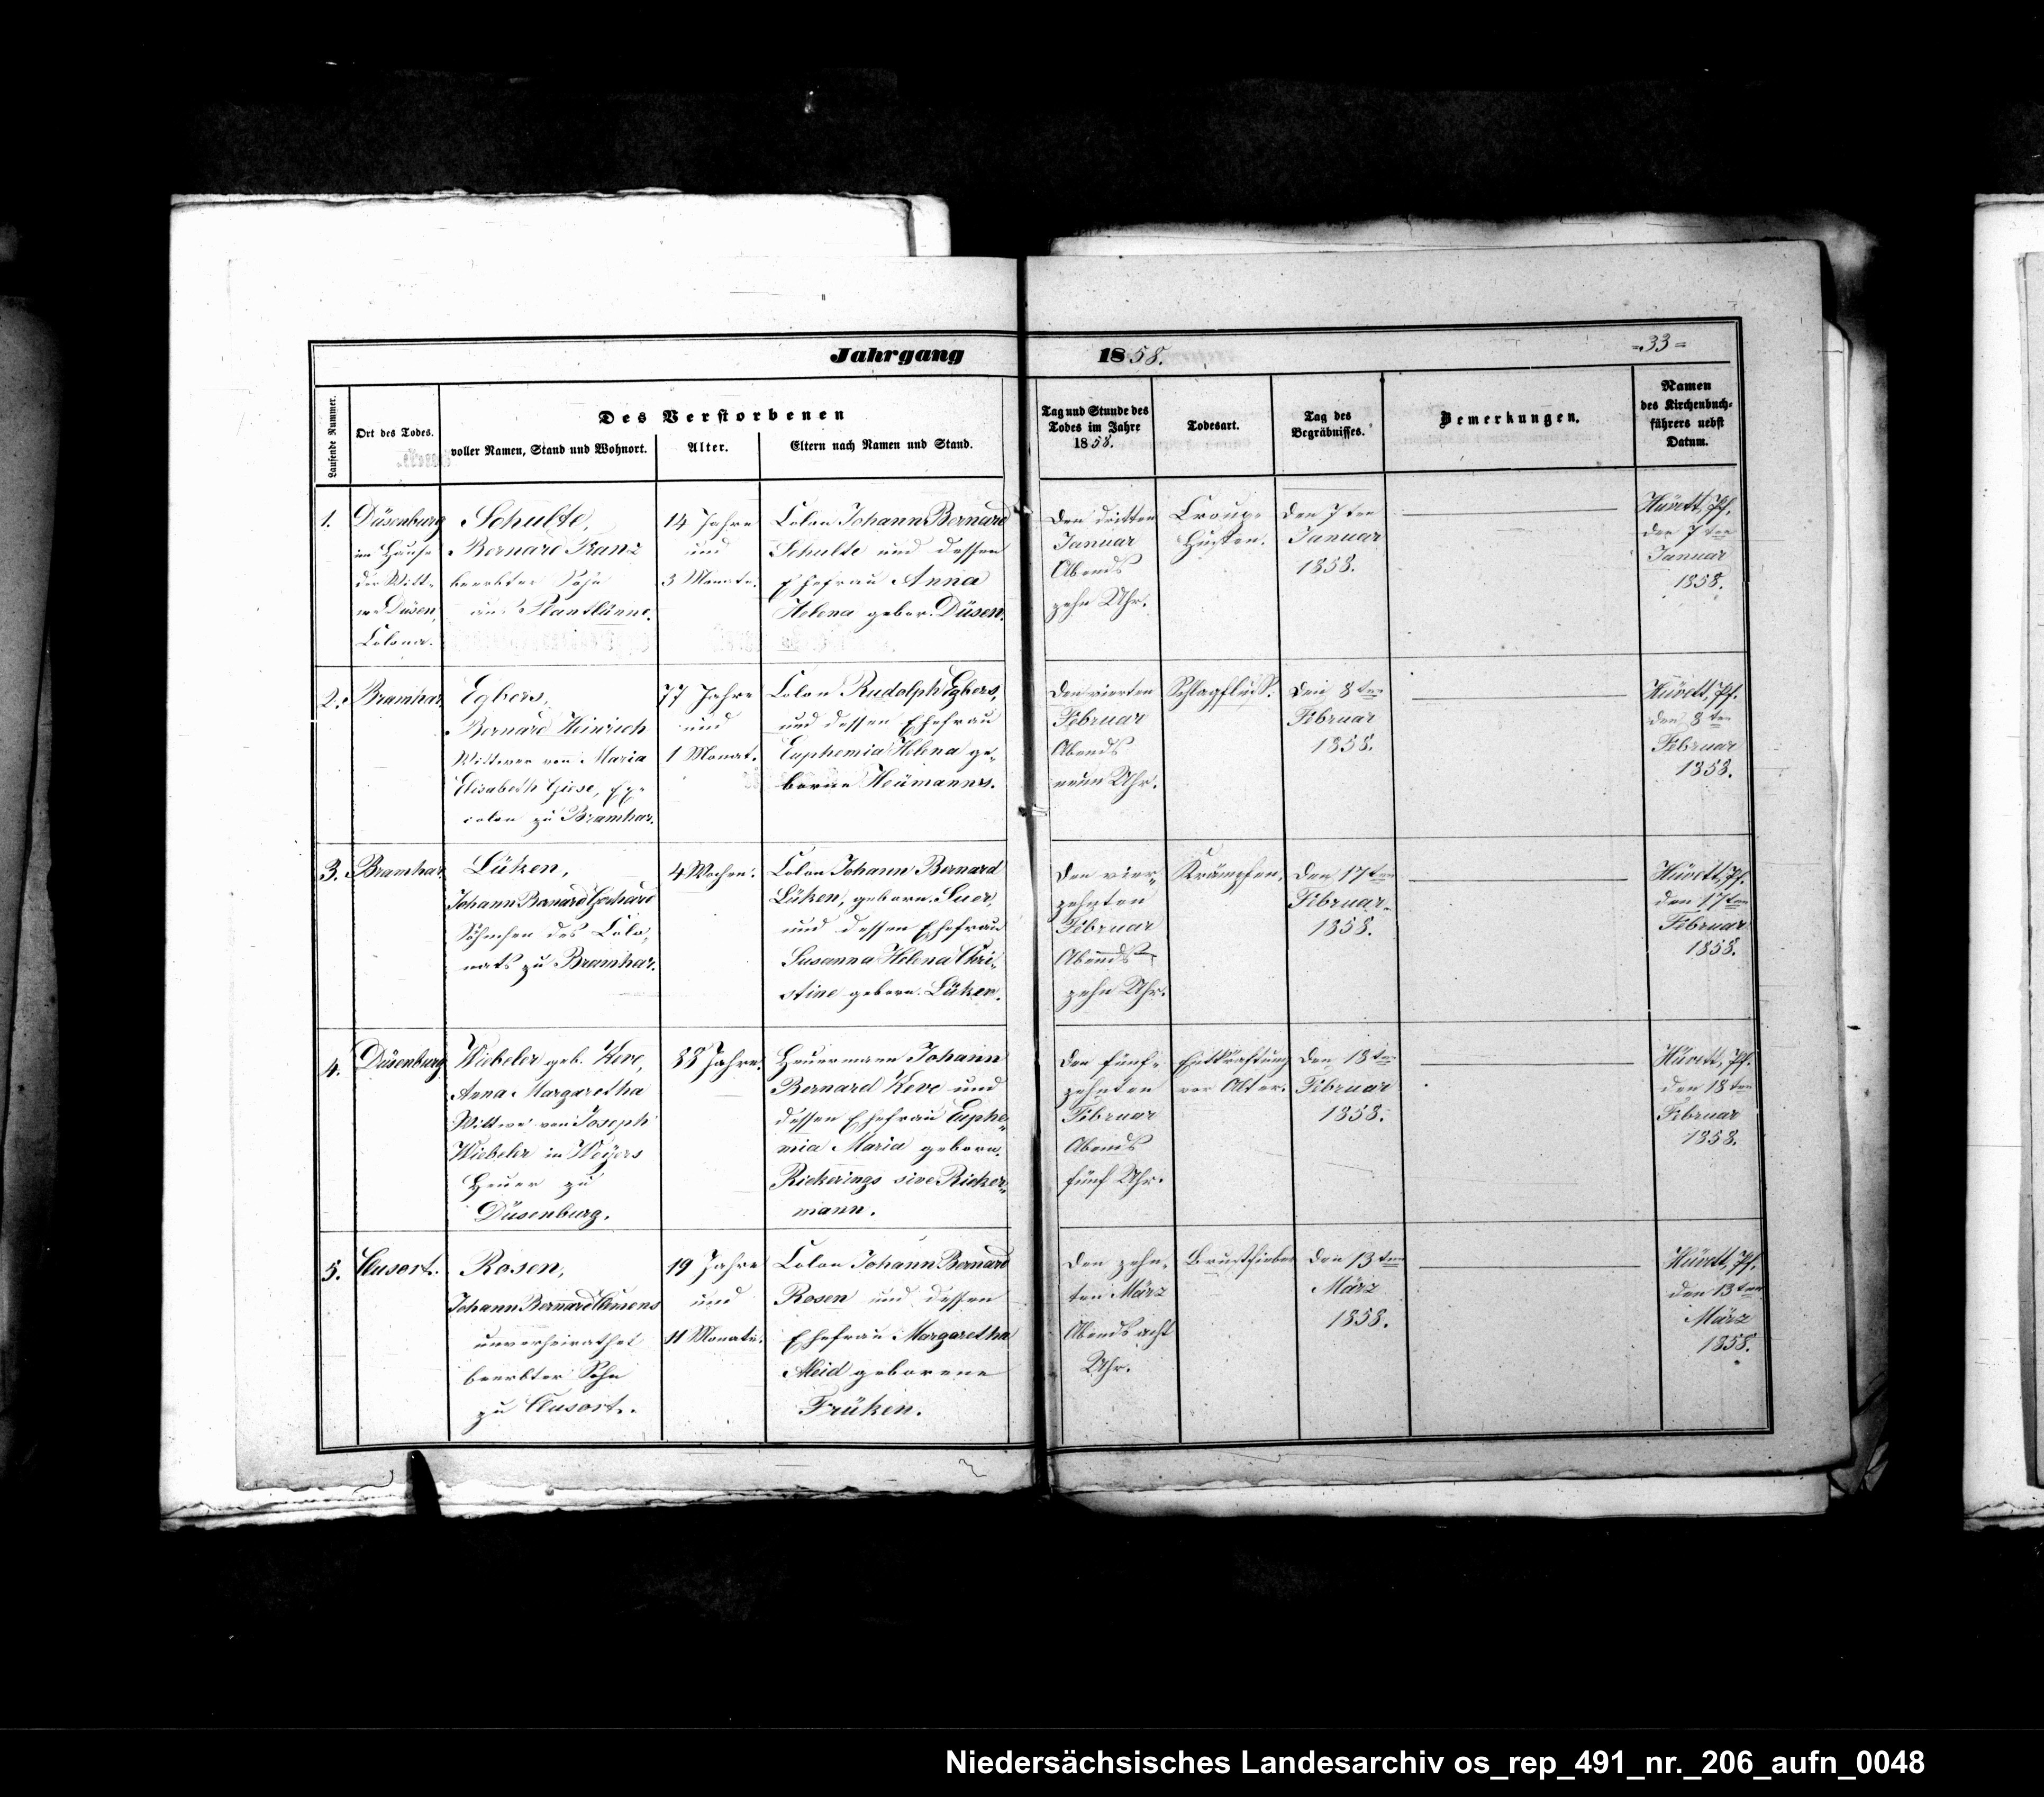 Jahrgang 1858.
=33=
Laufende Nummer.
Ort des Todes.
Des Verstorbenen
voller Namen, Stand und Wohnort.
Alter.
Eltern nach Namen und Stand.
Tag und Stunde des
Todes im Jahre
1858.
Todesart.
Tag des
Begräbnisses.
Bemerkungen.
Namen
des Kirchenbuch-
führers nebst
Datum.
1.
Düsenburg
im Hause
der Witt-
we Düsen,
Colona.
Schulte,
Bernard Franz
beerbter Sohn
aus Plantlünne.
14 Jahre
und
3 Monate.
Colon Johann Bernard
Schulte und dessen
Ehefrau Anna
Helena gebor. Düsen.
Den dritten
Januar
Abends
zehn Uhr.
Croup-
Husten.
Den 7ten
Januar
1858.
Hüvett, Pf.
den 7ten
Januar
1858.
2.
Bramhar.
Egbers,
Bernard Heinrich
Wittwer von Maria
Elisabeth Giese, Ex-
colon zu Bramhar.
77 Jahre
und
1 Monat.
Colon Rudolph Egbers,
und dessen Ehefrau
Euphemia Helena ge-
borne Heümanns.
Den vierten
Februar
Abends
neün Uhr.
Schlagfluß.
Den 8ten
Februar
1858.
Hüvett, Pf.
den 8ten
Februar
1858.
3.
Bramhar.
Lüken,
Johann Bernard Gerhard
Söhnchen des Colo-
nats zu Bramhar.
4 Wochen.
Colon Johann Bernard
Lüken, geborn. Suer,
und dessen Ehefrau
Susanna Helena Chri-
stine geborn. Lüken.
Den vier-
zehnten
Februar
Abends
zehn Uhr.
Krämpfen.
Den 17ten
Februar.
1858.
Hüvett, Pf.
den 17ten
Februar
1858.
4.
Düsenburg.
Wiebeler geb. Keve,
Anna Margaretha
Wittwe von Joseph
Wiebeler in Weÿers
Heuer zu
Düsenburg.
88 Jahre.
Heuermann Johann
Bernard Keve und
dessen Ehefrau Euphe-
mia Maria geborn.
Rickerings sive Ricker-
mann.
Den fünf-
zehnten
Februar
Abends
fünf Uhr.
Entkräftung
vor Alter.
Den 18ten
Februar
1858.
Hüvett, Pf.
den 18ten
Februar
1858.
5.
Clusort.
Rosen,
Johann Bernard Clemens
unverheirathet
beerbter Sohn
zu Clusort.
19 Jahre
und
11 Monate.
Colon Johann Bernard
Rosen und dessen
Ehefrau Margaretha
Aleid geborene
Frükin.
Den zehn-
ten März
Abends acht
Uhr.
Brustfieber
Den 13ten
März
1858.
Hüvett, Pf.
den 13ten
März
1858.
Niedersächsisches Landesarchiv os_rep_491_nr._206_aufn_0048